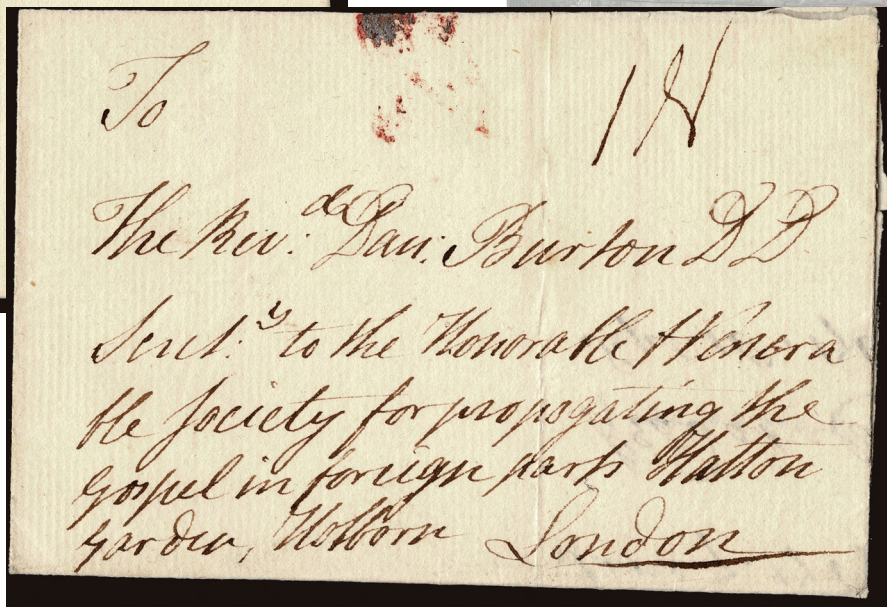 To
1N
The Revd. Dan: Burton DD
Secrety. to the Honorable & Venera
ble Society for propogating the
Gospel in foreign parts Hatton
Garden, Holborn London